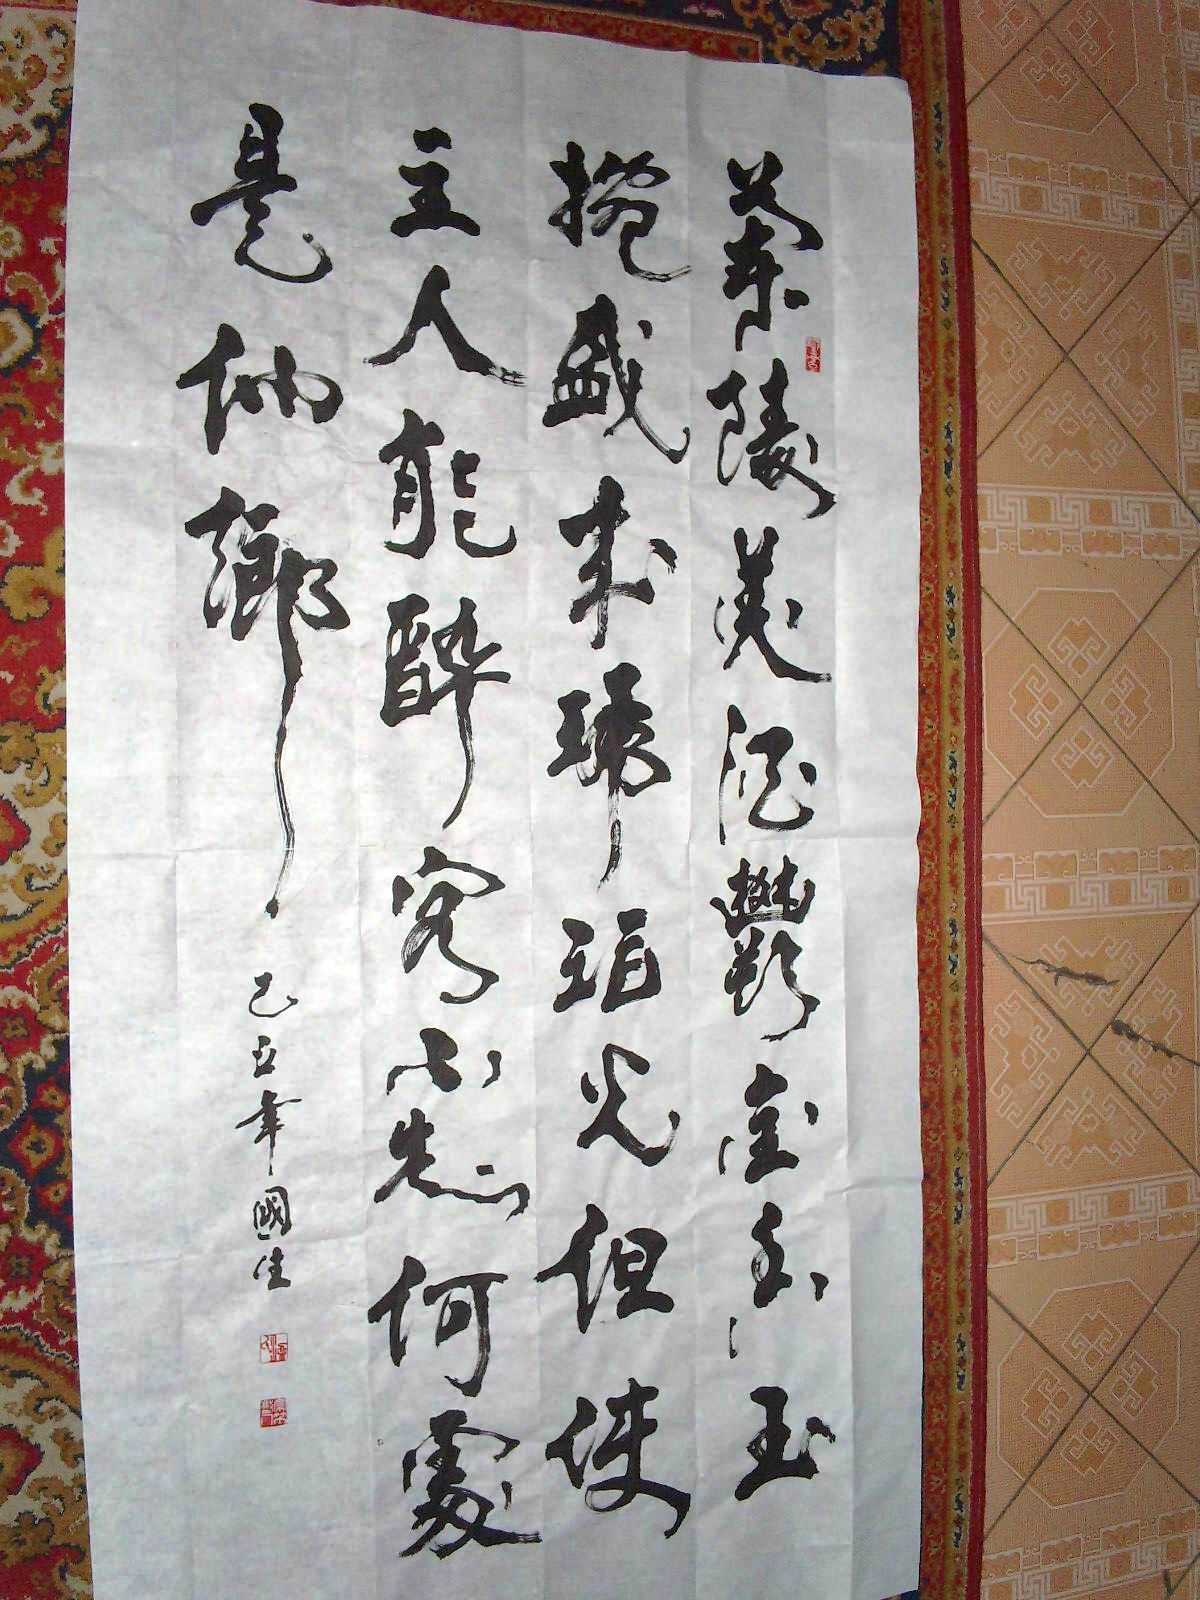 蘭陵美酒鬱金香玉
椀盛来琥珀光但使
主人能醉客不知何處
是他鄉
己丑年國佳